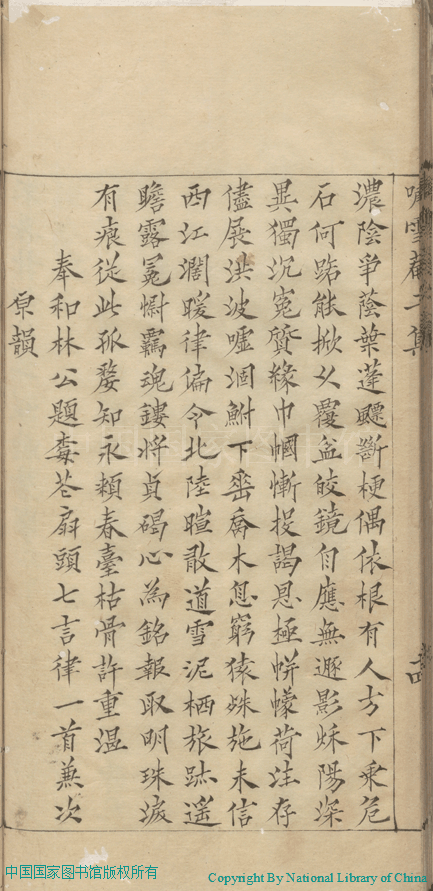 濃陰爭蔭葉蓬飄斷梗偶依根有人方下乘危
石何路能掀久覆盆皎鏡自應無遯影烁陽深
異獨沉寃質緣巾幗慚投謁恩極帡幪荷注存
儘展洪波噓涸鮒下喬木息窮猿殊施未信
西江濶暖律徧令北陸暄敢道雪泥栖旅跡遥
瞻露冕慰羈魂鏤將貞碣心為銘報取明珠淚
有痕從此孤嫠知永賴春臺枯骨許重温
奉和林公題扇頭七言律一首兼次
原韻
中国国家图书馆版权所有
Copyright By National Library of China